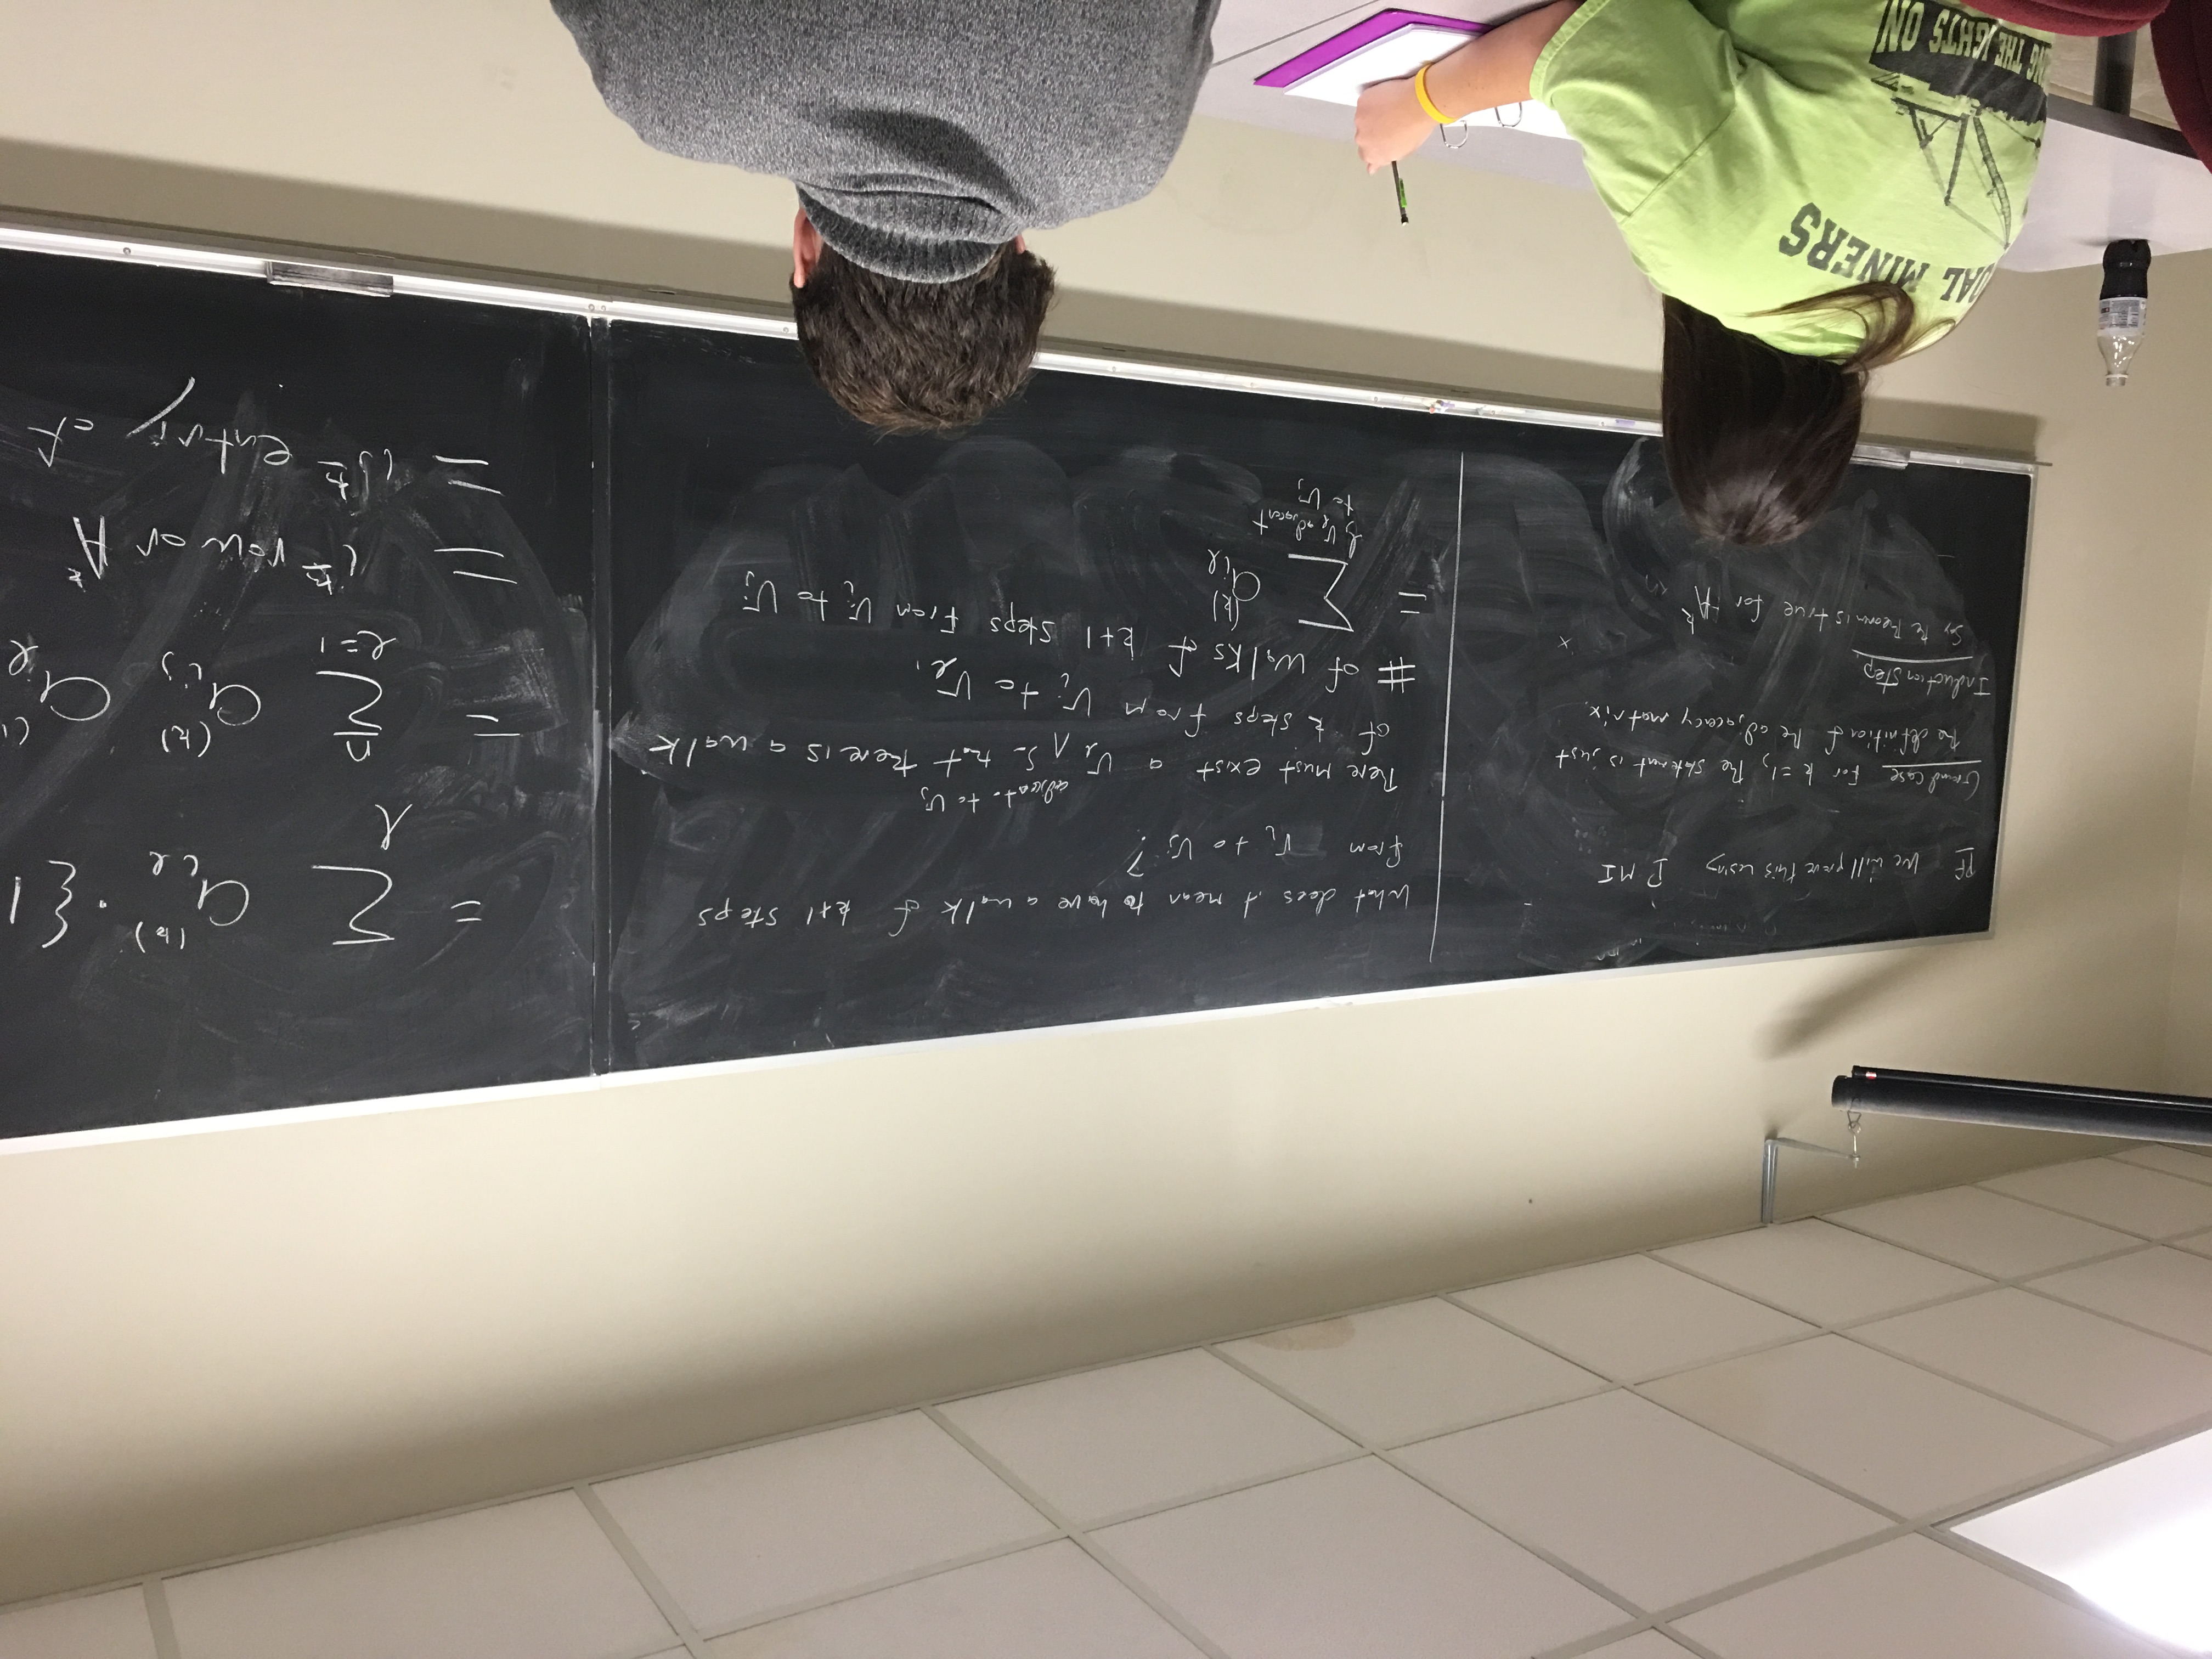 Pf We will prove this using PMI
Ground case For k=1, the statement is just
the definition of the adjacency matrix.
Induction step
Say the theorem is true for A^k
What does it mean to have a walk of k+1 steps
from v_i to v_j?
adjacent to v_j
There must exist a v_l ∧ so that there is a walk
of k steps from v_i to v_l.
# of walks of k+1 steps from v_i to v_j
= Σ a_il^(k)
l, v_l adjacent
to v_j
= Σ a_il^(k) · {1
l
n
= Σ a_ij^(k) a_l
l=1
= i^th row of A^k
= ij^th entry of
OAL MINERS
NG THE IGHTS ON